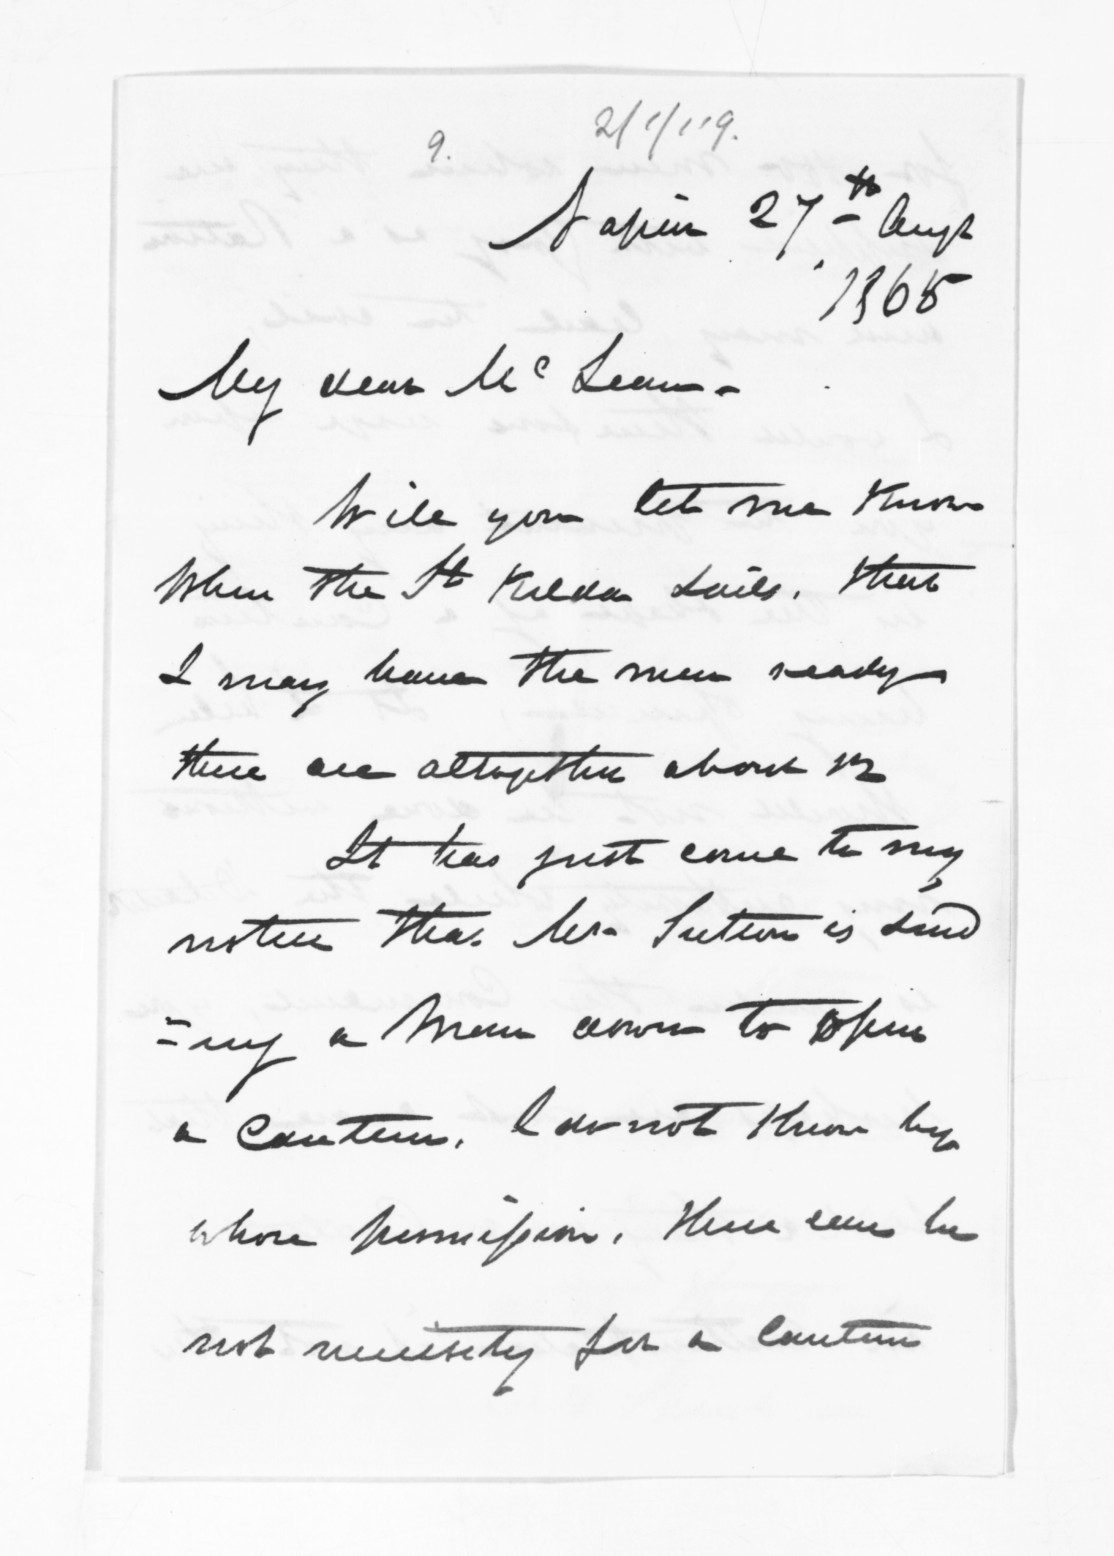 9.
2/1/119.
Napier 27th Augt
1865
My dear McLean.
Will you let me know
when the St Kilda sails. that
I may have the men ready
there are altogether about 12
It has just come to my
notice that Mr Sutton is send
=ing a man down to open
a Canteen, I do not know by
whose permission. there can be
not necessity for a Canteen